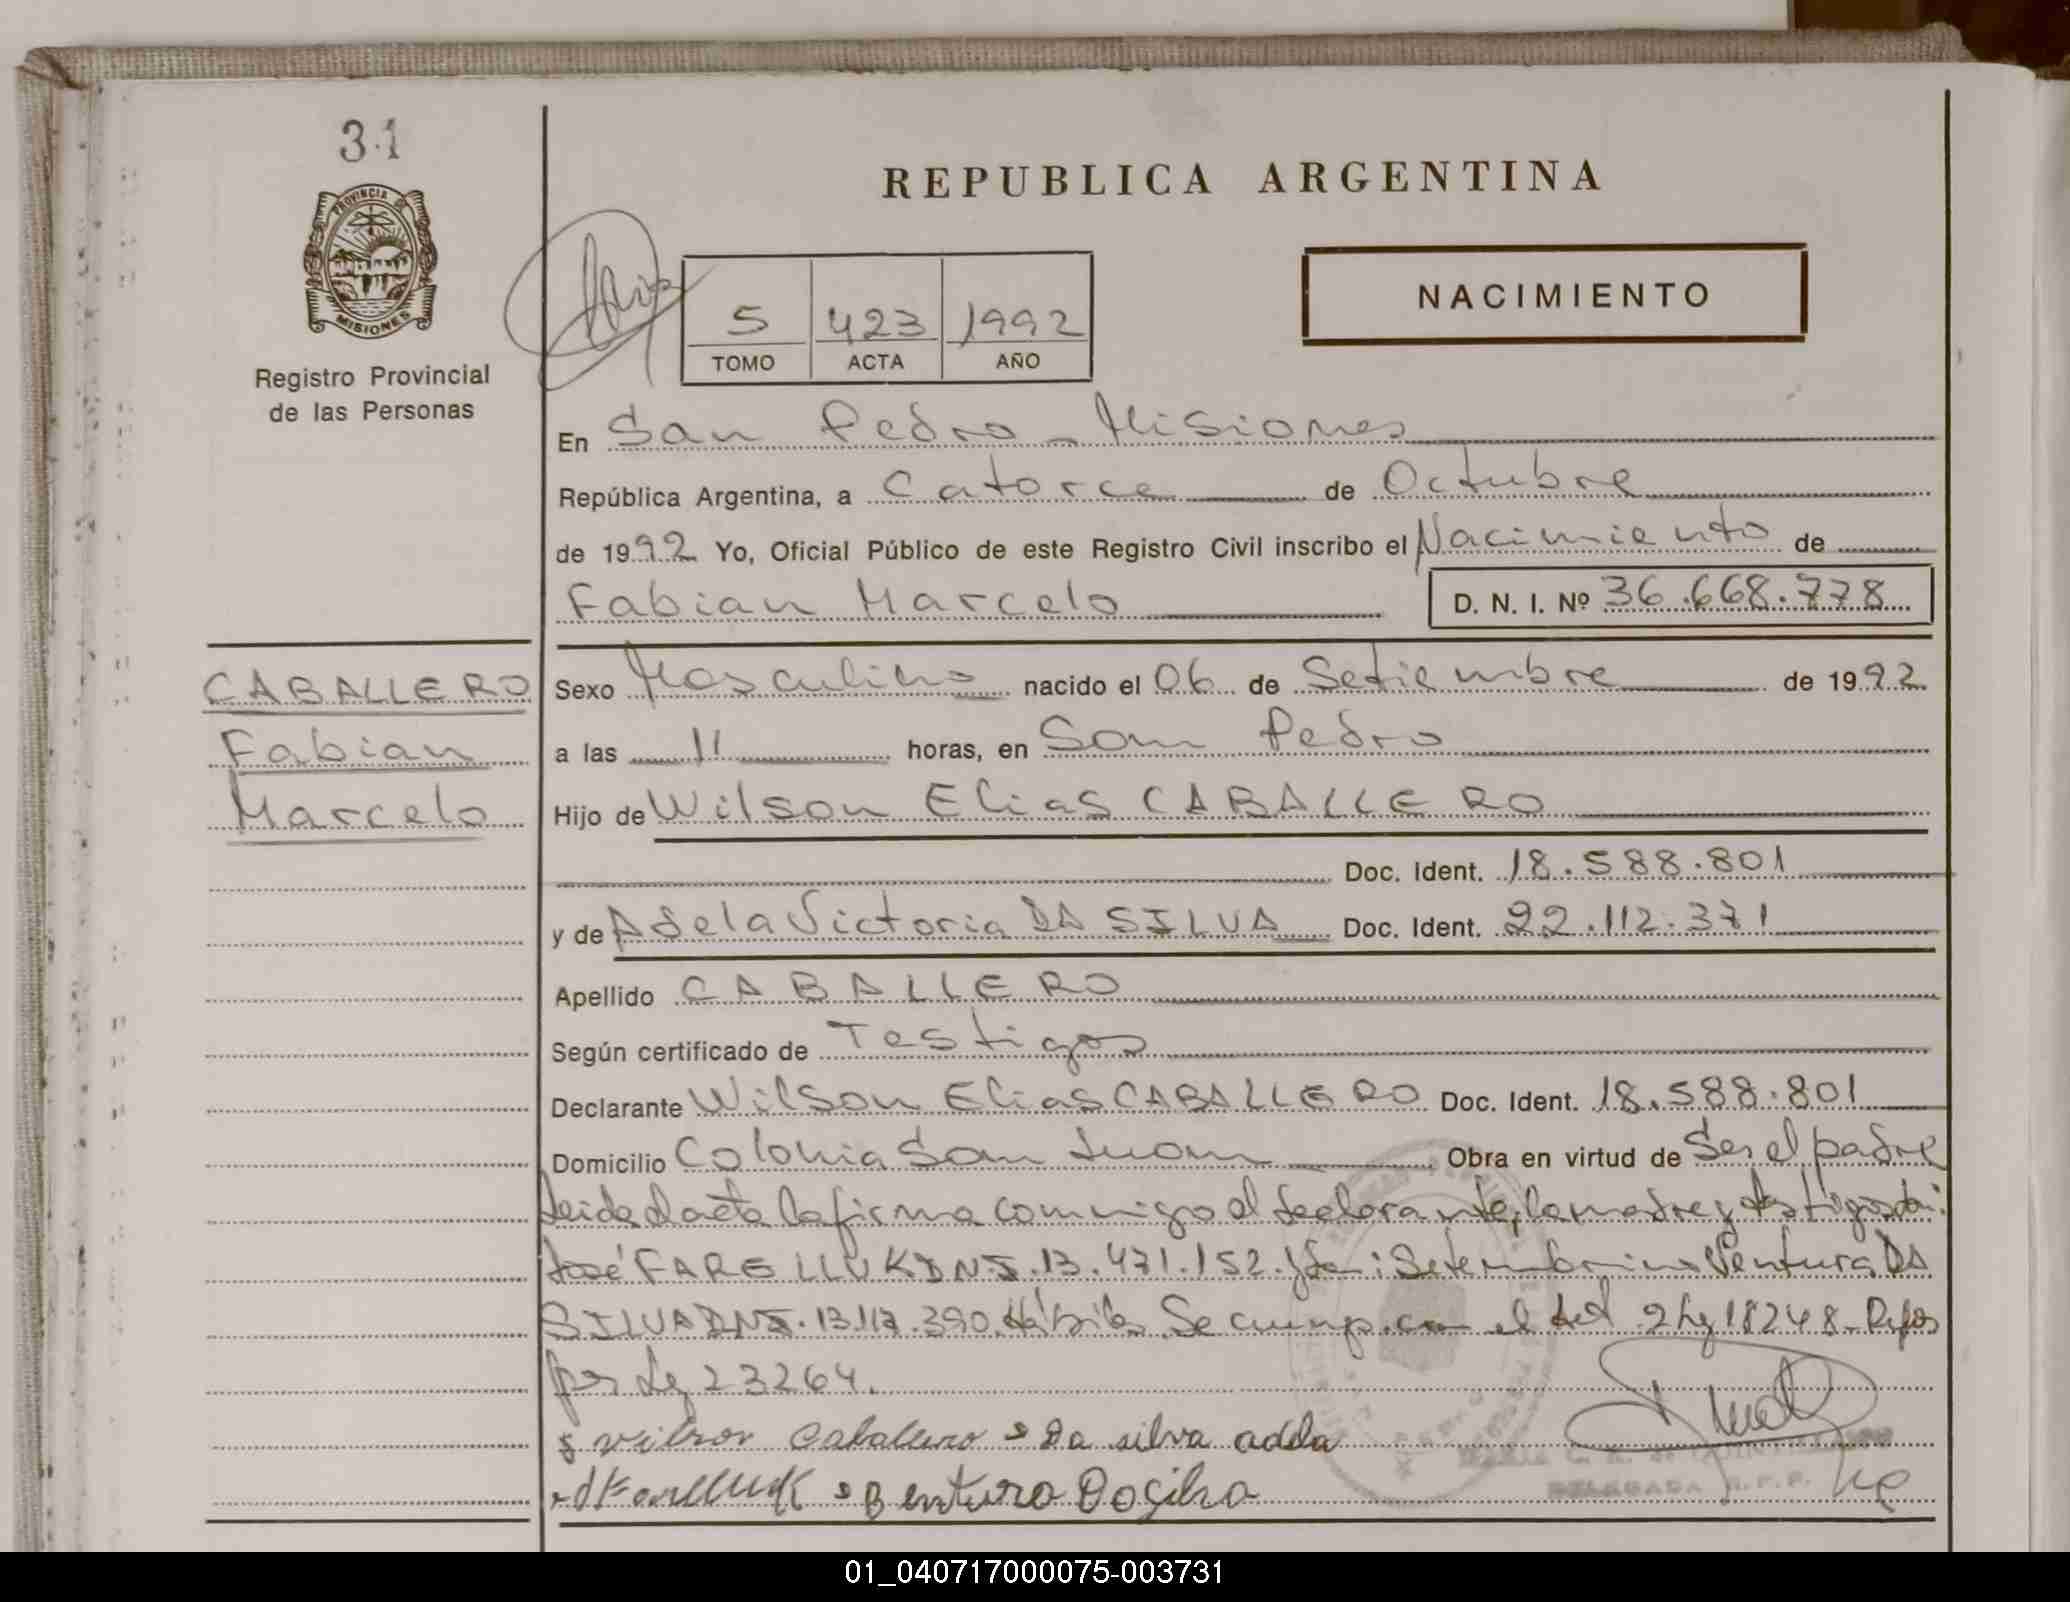 31
PROVINCIA DE
MISIONES
Registro Provincial
de las Personas
REPUBLICA ARGENTINA
NACIMIENTO
5 423 1992
TOMO ACTA AÑO
En San Pedro - Misiones
República Argentina, a Catorce de Octubre
de 1992 Yo, Oficial Público de este Registro Civil inscribo el Nacimiento de
Fabian Marcelo D. N. I. Nº 36.668.778
CABALLERO
Fabian
Marcelo
Sexo Masculino nacido el 06 de Setiembre de 1992
a las 11 horas, en San Pedro
Hijo de Wilson Elias CABALLERO
Doc. Ident. 18.588.801
y de Adela Victoria DA SILVA Doc. Ident. 22.112.371
Apellido CABALLERO
Según certificado de Testigos
Declarante Wilson Elias CABALLERO Doc. Ident. 18.588.801
Domicilio Colonia San Juan Obra en virtud de Ser el padre
Leida el acta la firma conmigo el declarante, la madre y testigos
José FARELLUK DNI. 13.471.152. Setembrino Ventura DA
SILVA DNI. 13.117.390. Hábiles. Se cump. con el Art. 2 Ley 18248 -
por Ley 23264.
Vilson Caballero Da silva adela
Ventura Dasilva
DELEGADA R.P.P.
01_040717000075-003731